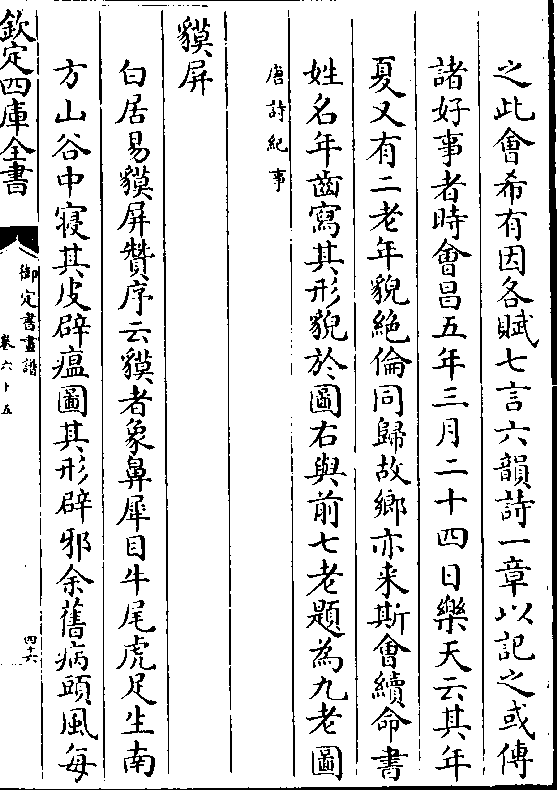 之此會希有因各賦七言六韻詩一章以記之或傳
諸好事者時會昌五年三月二十四日樂天云其年
夏又有二老年貌絶倫同歸故鄉亦来斯會續命書
姓名年齒寫其形貌於圖右與前七老題為九老圖
唐詩紀事
貘屏
白居易貘屏贊序云貘者象鼻犀目牛尾虎足生南
方山谷中寝其皮辟瘟圖其形辟邪余舊病頭風每
欽定四庫全書
御定書畫譜
卷六十五
四十六